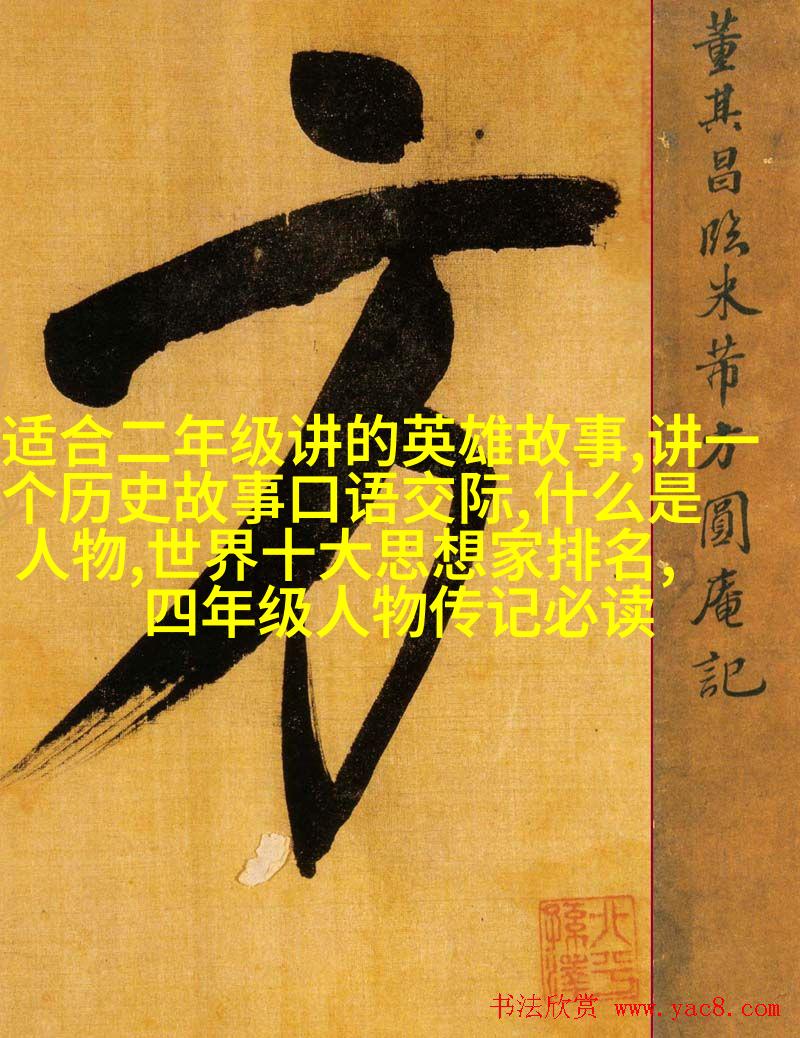 方
董其昌臨米芾方圓庵記
适合二年级讲的英雄故事,讲一
个历史故事口语交际,什么是
人物,世界十大思想家排名,
四年级人物传记必读
北平
孫氏
书法欣赏 www.yac8.com